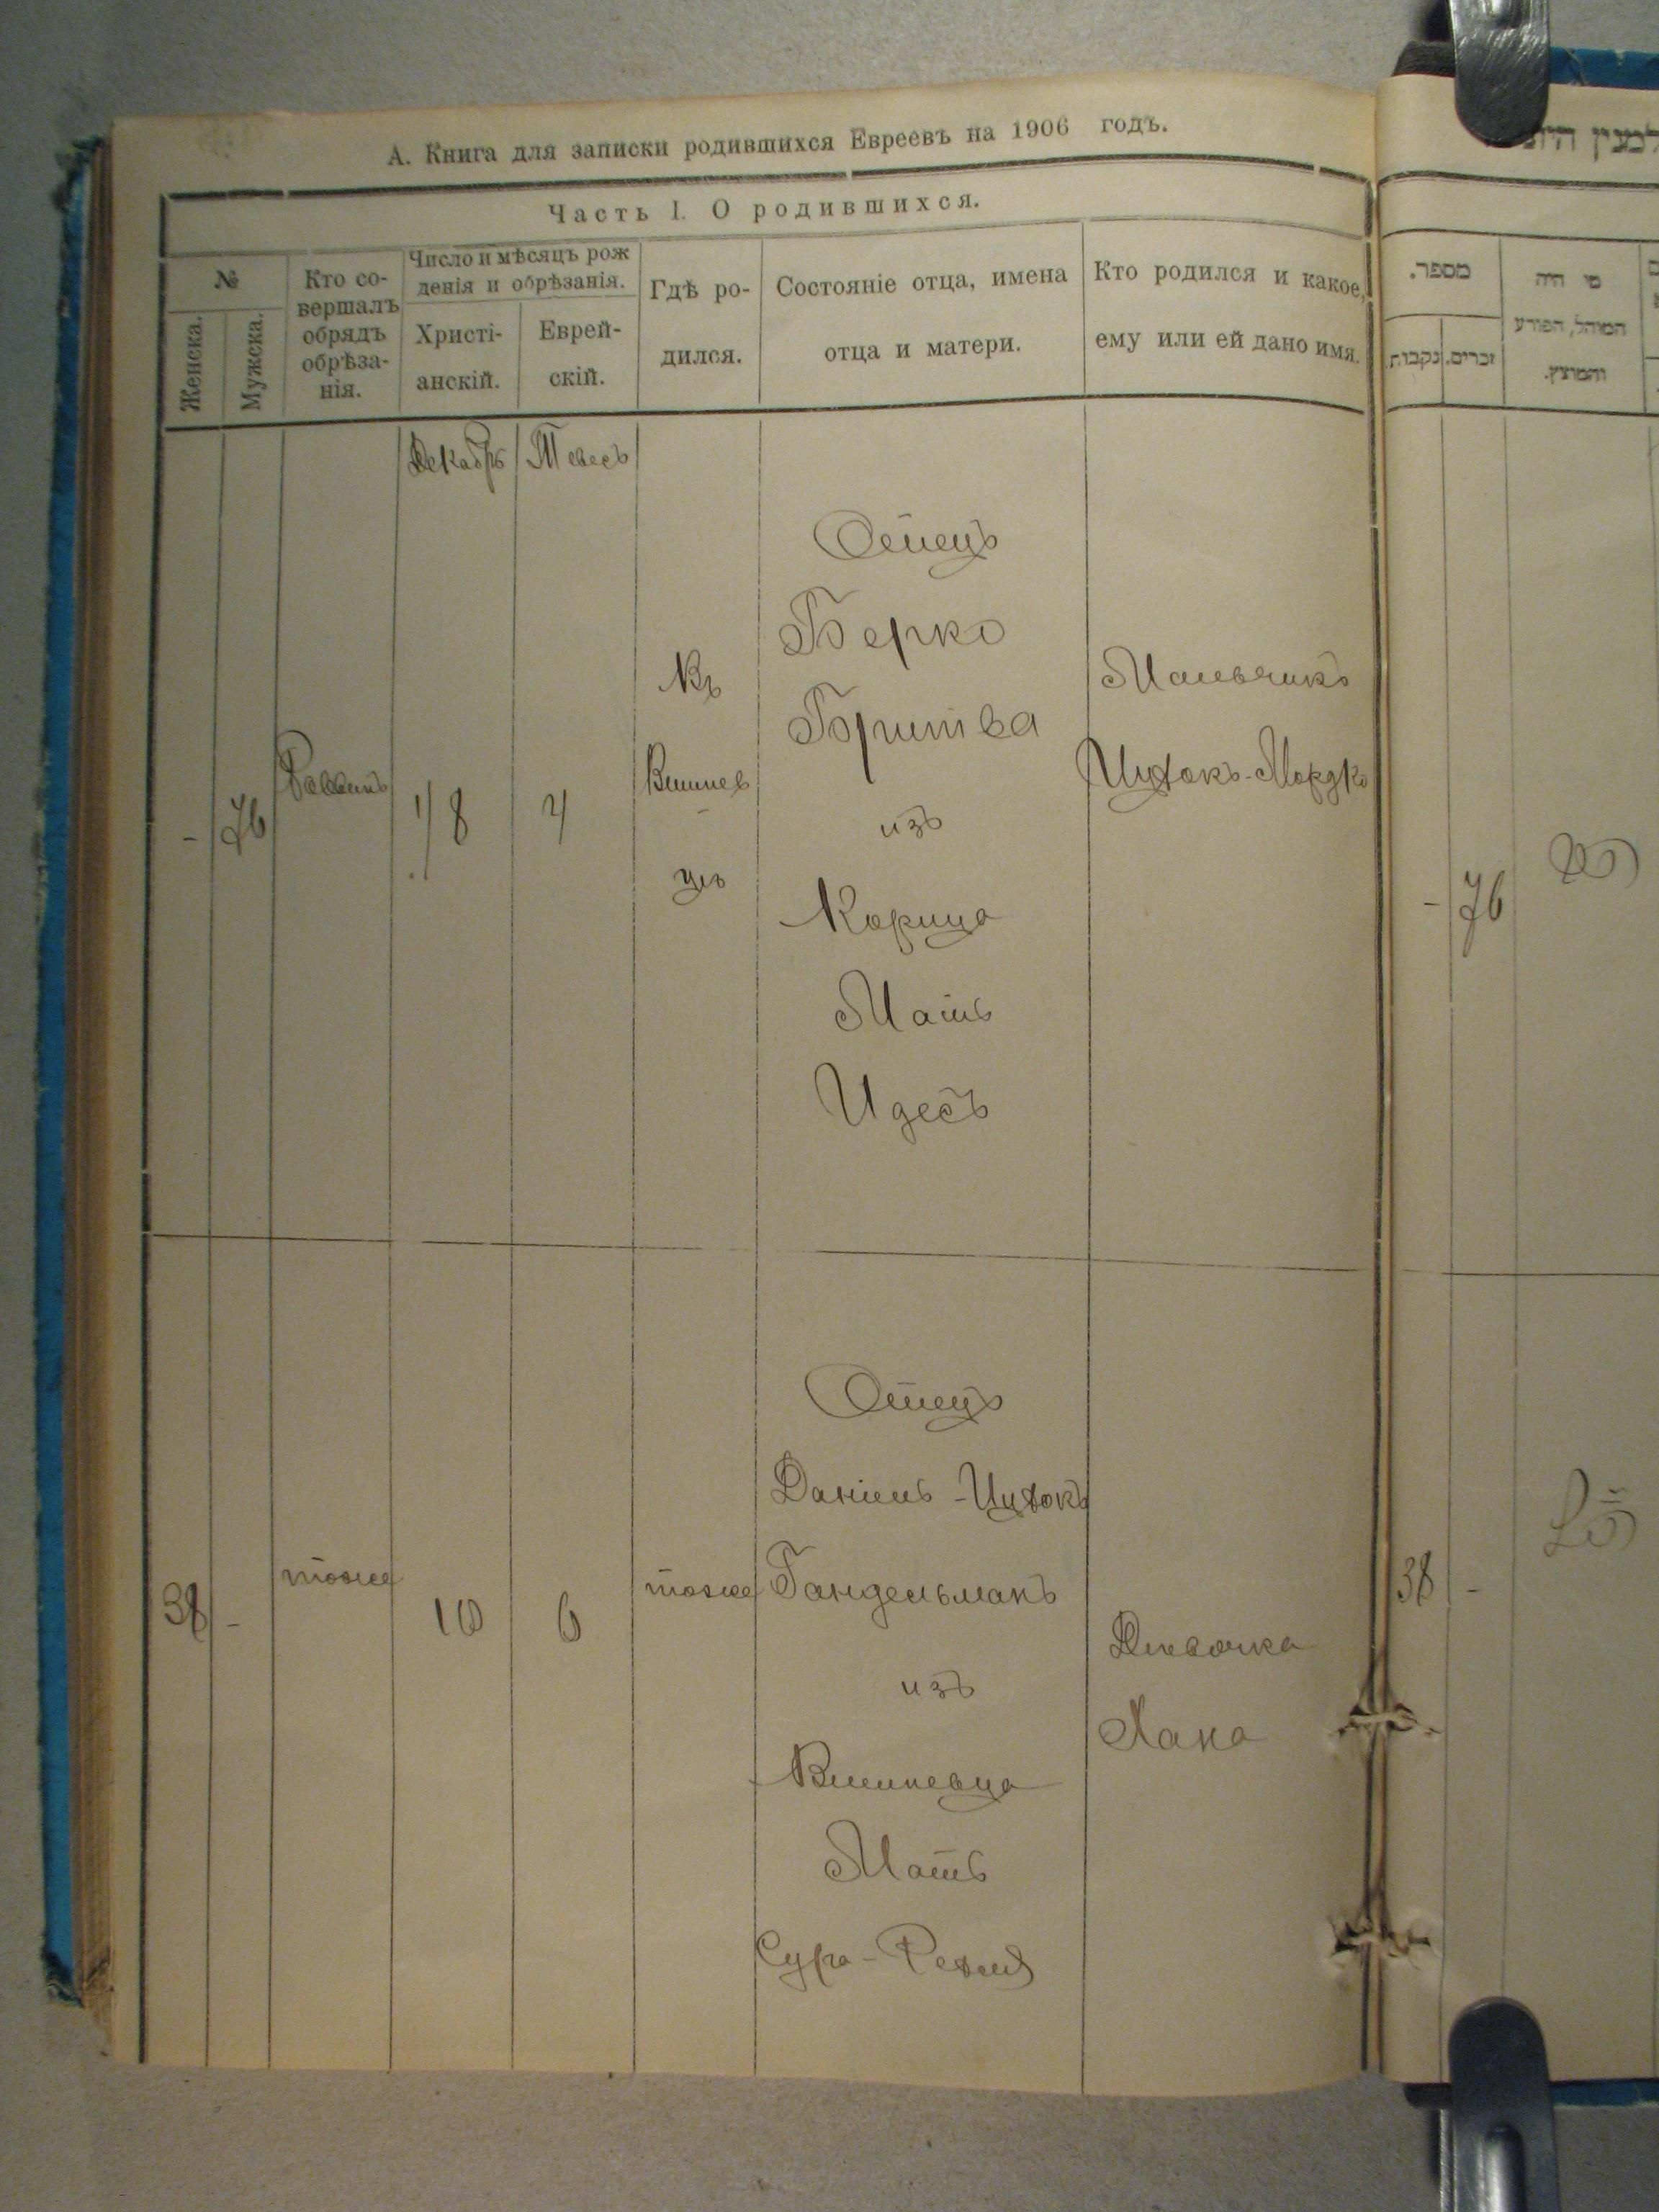 А. Книга для записки родившихся Евреевъ на 1906 годъ.
Часть I. О родившихся.
№
Женска.
Мужска.
Кто со-
вершалъ
обрядъ
обрѣза-
нія.
Число и мѣсяцъ рож
денія и обрѣзанія.
Христі-
анскій.
Еврей-
скій.
Гдѣ ро-
дился.
Состояніе отца, имена
отца и матери.
Кто родился и какое,
ему или ей дано имя.
Декабрь
Тевесъ
-
76
Раввинъ
4
Въ
Вишнев
-
цѣ
Отецъ
Берко
из
Корица
Мать
Идесъ
Мальчикъ
Ицхокъ-Мордко
38
-
тоже
10
6
тоже
Отецъ
Даніель-Ицхокъ
Гандельманъ
изъ
Вишневца
Мать
Сура-Рехля
Дѣвочка
Хана
מספר.
נקבות
זכרים.
מי היה
המוהל, הפורע
והמוצץ.
-
76
38
-